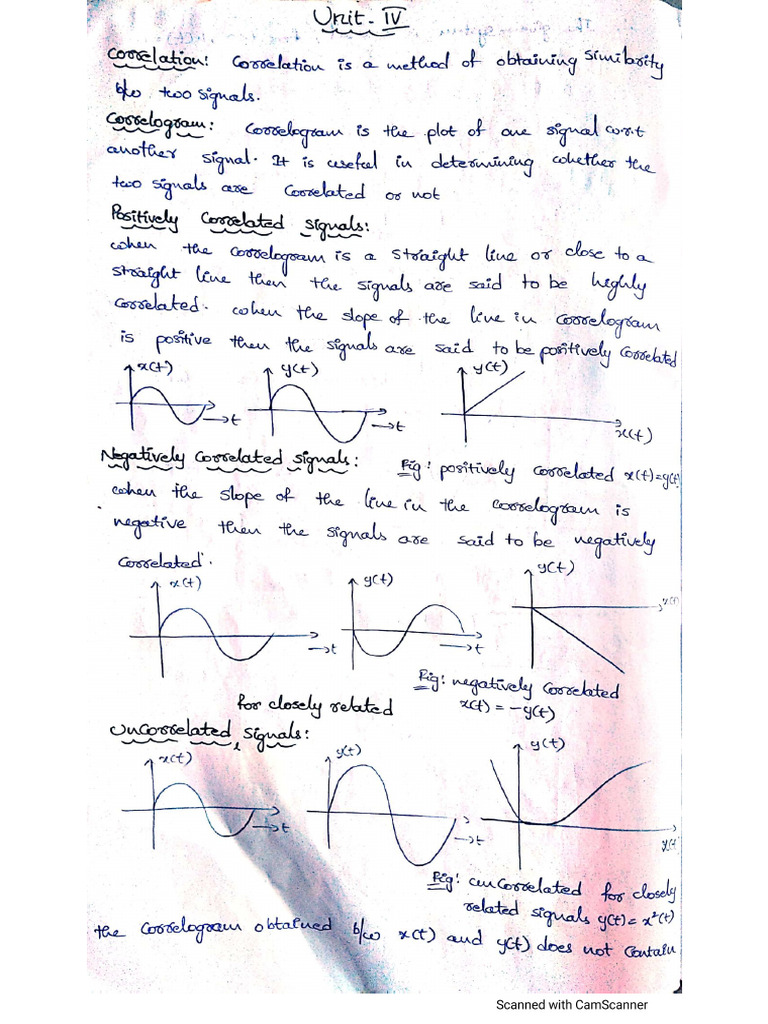 Unit-IV
Correlation: Correlation is a method of obtaining similarity
b/w two signals.
Correlogram: Correlogram is the plot of one signal w.r.t
another signal. It is useful in determining whether the
two signals are Correlated or not
Positively Correlated signals:
when the correlogram is a straight line or close to a
straight line then the signals are said to be highly
correlated. when the slope of the line in correlogram
is positive then the signals are said to be positively correlated
x(t) y(t) y(t)
→t →t x(t)
Negatively correlated signals: Fig: positively correlated x(t)=y(t)
when the slope of the line in the correlogram is
negative then the signals are said to be negatively
correlated.
x(t) y(t) y(t)
x(t)
→t →t
Fig: negatively Correlated
x(t) = -y(t)
for closely related
Uncorrelated signals:
x(t) y(t) y(t)
→t →t
Fig: uncorrelated for closely
related signals y(t)=x²(t)
the correlogram obtained b/w x(t) and y(t) does not contain
Scanned with CamScanner